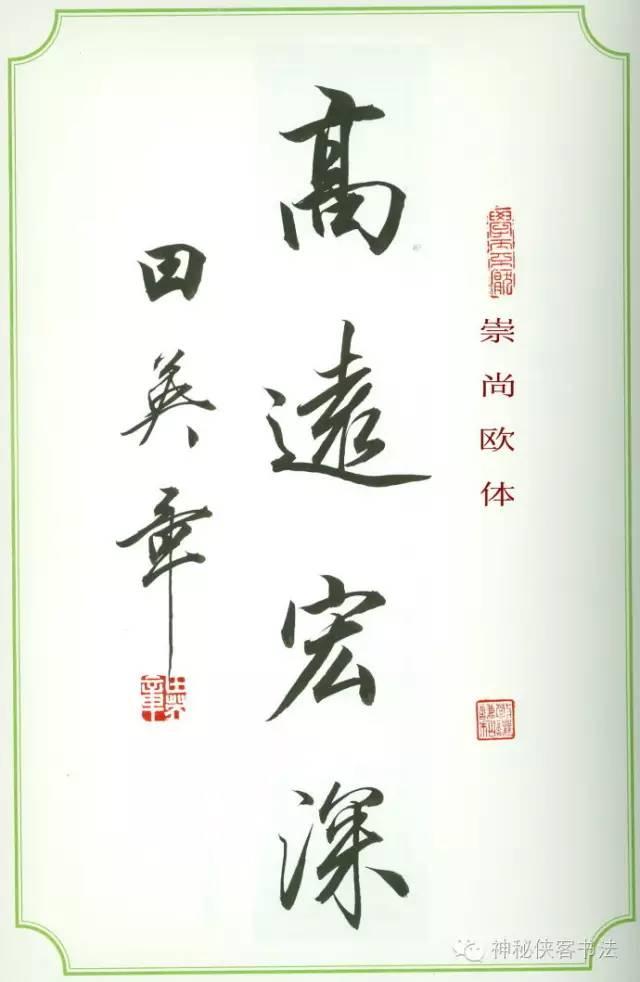 崇尚欧体
高遠宏深
田英章
神秘侠客书法